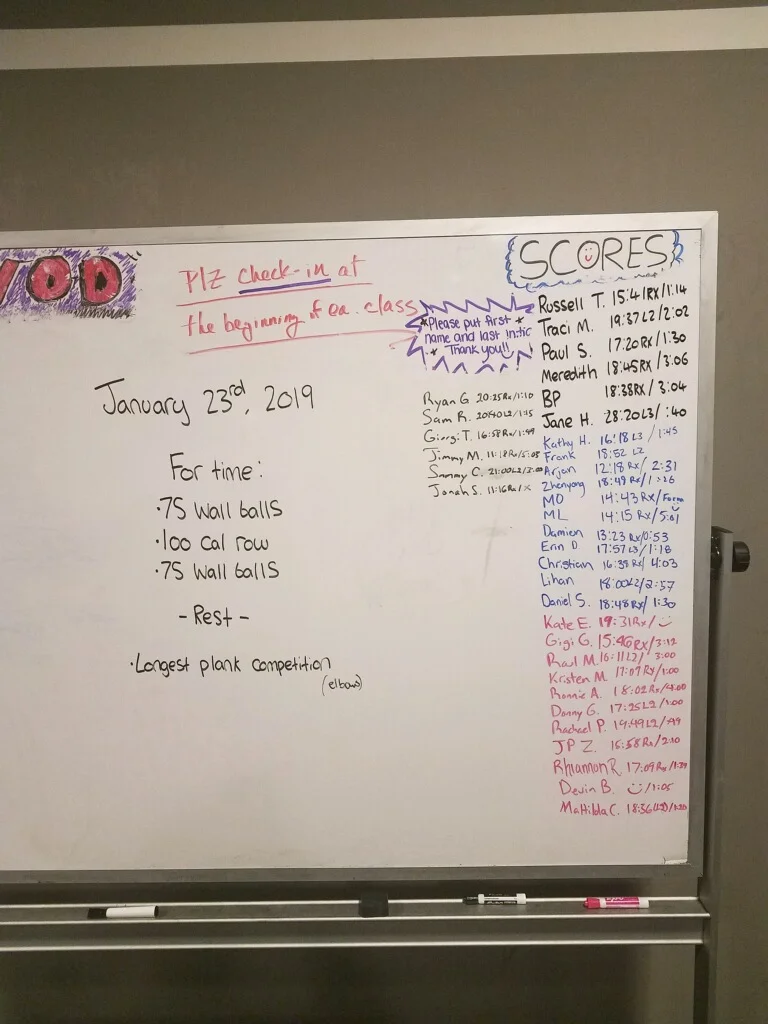 WOD
Plz check-in at
the beginning of ea. class
*Please put first *
name and last initial
* Thank you!!
January 23rd, 2019
For time:
·75 Wall balls
·100 Cal row
·75 Wall balls
- Rest -
·Longest plank competition
(elbows)
Ryan G. 20:25Rx/1:10
Sam R. L2/
Giorgi T. 16:58Rx/
Jimmy M. 11:18Rx/5:05
Sammy C. 21:00L2/
Jonah S. 11:16Rx/x
SCORES
Russell T. 15:41RX/1:14
Traci M. 19:37L2/2:02
Paul S. 17:20Rx/1:30
Meredith 18:45RX/3:06
BP 18:38Rx/3:04
Jane H. 28:20L3/:40
Kathy H. 16:18 L3/1:45
Frank 18:52 L2
Arjan 12:18 Rx/2:31
Zhenyong 18:49 Rx/
MO 14:43 Rx/Form
ML 14:15 Rx/
Damien 13:23 Rx/0:53
Erin D 17:57L3/1:18
Christian Rx/4:03
Lihan 18:00L2/2:57
Daniel S. 18:48Rx/1:30
Kate E. 19:31Rx/
Gigi G. 15:46Rx/3:12
Raul M. 16:11L2/3:00
Kristen M. 17:07Rx/1:00
Ronnie A. 18:02Rx/
Danny G. 17:25L2/1:00
Rachael P. 19:49L2/
JP Z. Rx/2:10
Rhiannon R. 17:09Rx/
Devin B. /1:05
Matilda C. 18:36
EXPO